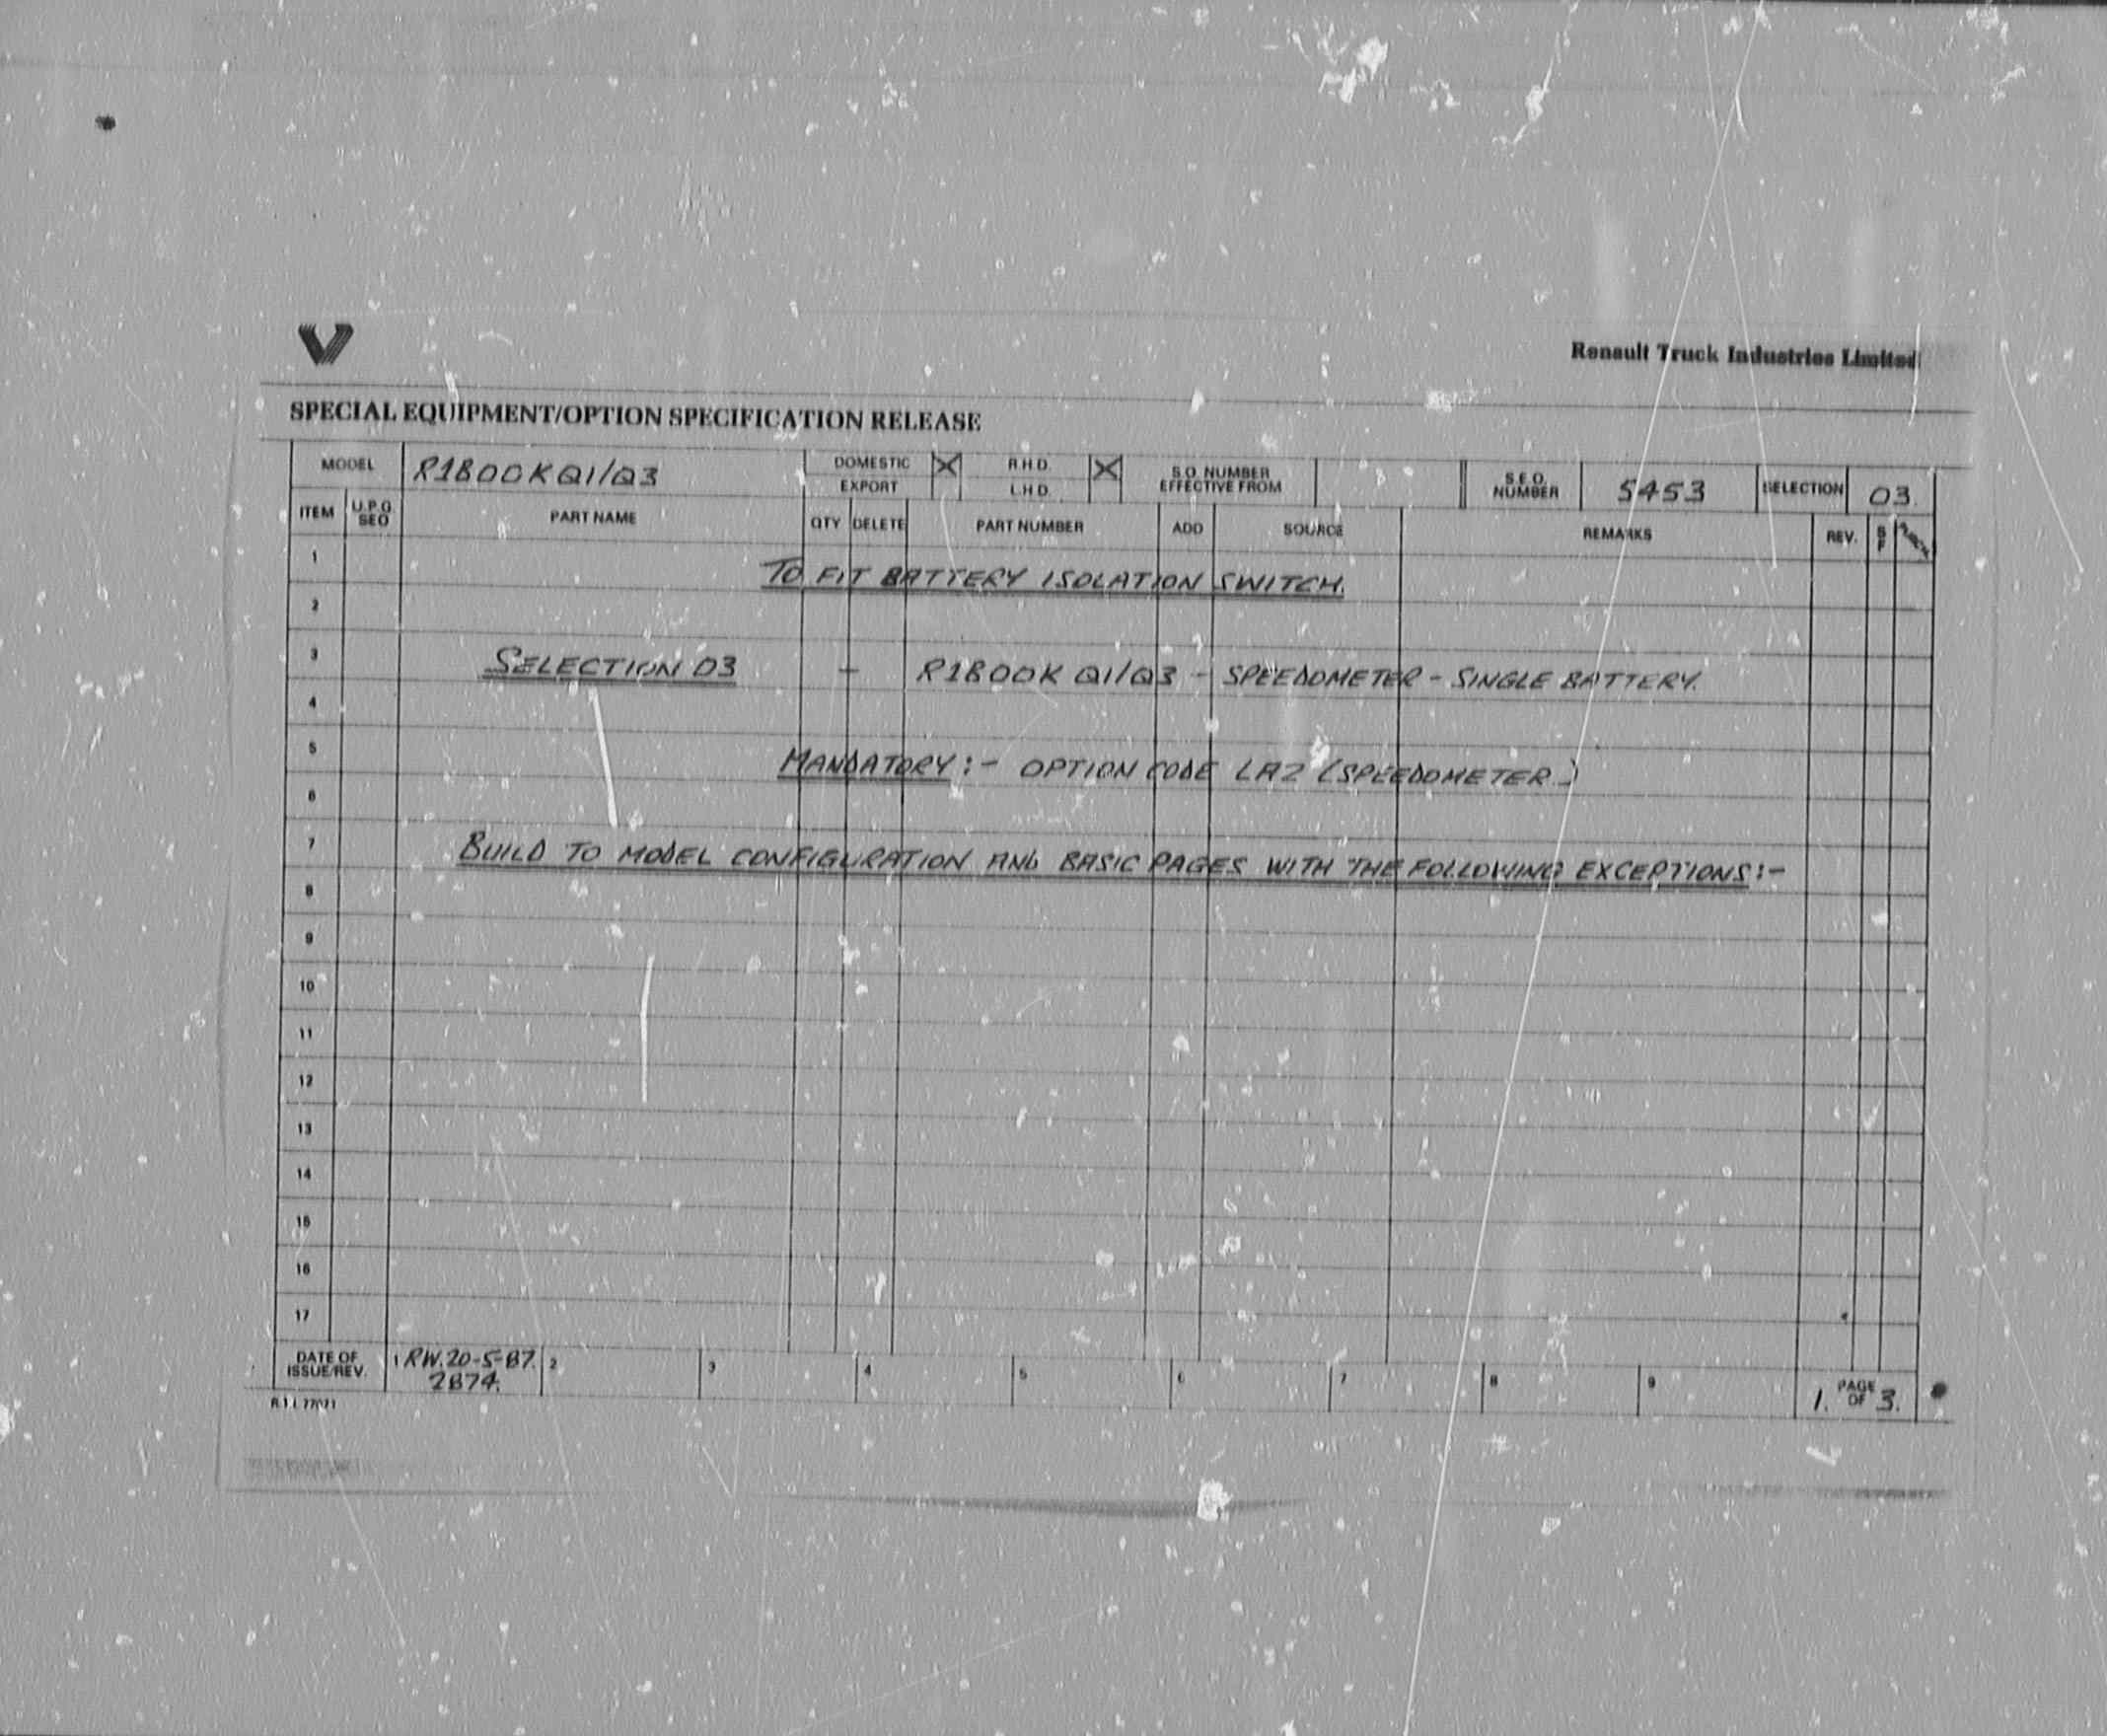 Renault Truck Industries Limited
SPECIAL EQUIPMENT/OPTION SPECIFICATION RELEASE
MODEL R1800KQ1/Q3 DOMESTIC X R.H.D. X S.O. NUMBER EFFECTIVE FROM S.E.O. NUMBER 5453 SELECTION 03.
EXPORT L.H.D.
ITEM U.P.G. SEQ PART NAME QTY DELETE PART NUMBER ADD SOURCE REMARKS REV.
1 TO FIT BATTERY ISOLATION SWITCH.
2
3 SELECTION 03 - R1800K Q1/Q3 - SPEEDOMETER - SINGLE BATTERY.
4
5 MANDATORY:- OPTION CODE LA2 (SPEEDOMETER.)
6
7 BUILD TO MODEL CONFIGURATION AND BASIC PAGES WITH THE FOLLOWING EXCEPTIONS:-
8
9
10
11
12
13
14
15
16
17
DATE OF ISSUE/REV. 1 RW. 20-5-87. 2 3 4 5 6 7 8 9 1. PAGE OF 3.
2874.